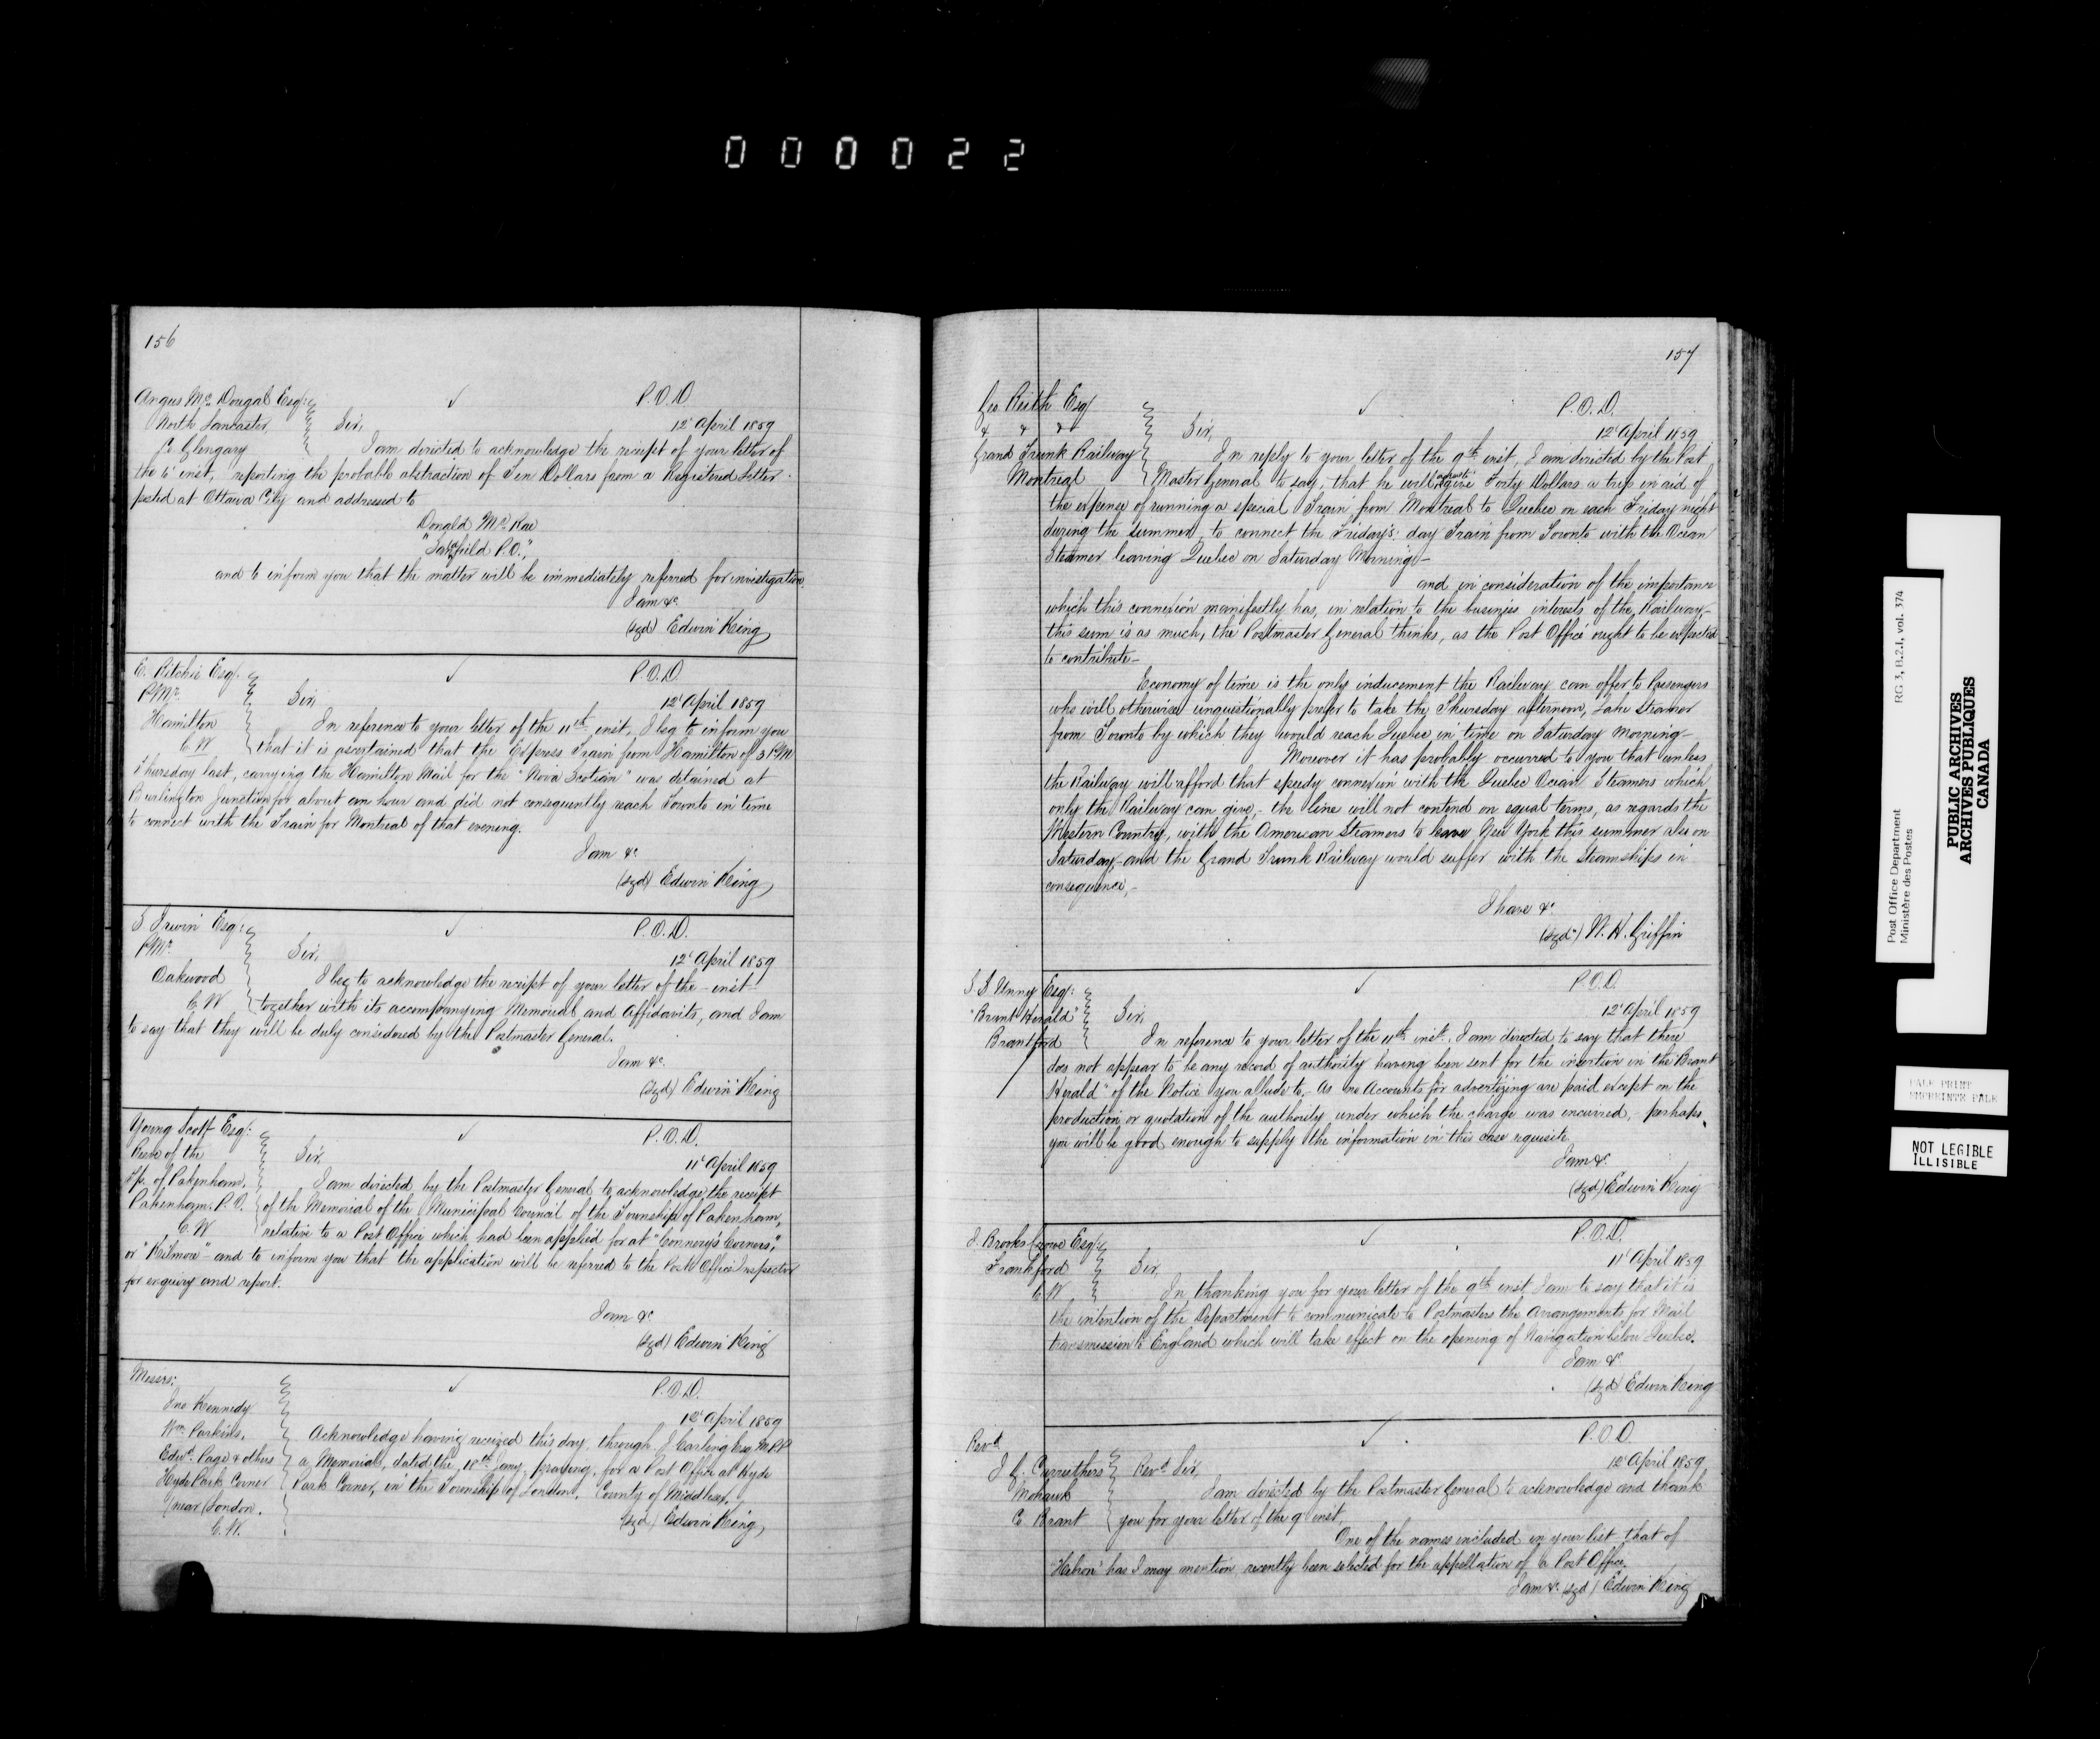 000022
156
Angus Mc Dougal Esq:
North Lancaster
Co Glengary
P.O.D
12 April 1859
Sir,
I am directed to acknowledge the receipt of your letter of
the 6 inst, reporting the probable abstraction of Ten Dollars from a Registered Letter
posted at Ottawa City and addressed to
Donald Mc Rae
P.O."
and to inform you that the matter will be immediately referred for investigation.
I am &c
(sgd) Edwin King
E. Ritchie Esq.
P Mr
Hamilton
C W
P.O.D.
12 April 1859
Sir,
In reference to your letter of the 11th inst, I beg to inform you
that it is ascertained that the Express Train from Hamilton of 3 P M
Thursday last, carrying the Hamilton Mail for the "Nova Scotian" was detained at
Burlington Junction for about an hour and did not consequently reach Toronto in time
to connect with the Train for Montreal of that evening.
I am &c
(sgd) Edwin King
S. Irwin Esq:
P Mr
Oakwood
C. W
P.O.D.
12 April 1859
Sir,
I beg to acknowledge the receipt of your letter of the - inst
together with its accompanying Memorial and Affidavits, and I am
to say that they will be duly considered by the Postmaster General.
I am &c
(sgd) Edwin King
Young Scott Esq:
Reeve of the
Tp. of Pakenham.
Pakenham. P.O.
C. W
P.O.D.
11 April 1859
Sir,
I am directed by the Postmaster General to acknowledge the receipt
of the Memorial of the Municipal Council of the Township of Pakenham,
relative to a Post Office which had been applied for at "Connery's Corners,"
or "Kilmore" - and to inform you that the application will be referred to the Post Office Inspector
for enquiry and report.
I am &c
(sgd) Edwin King
Messrs:
Jno Kennedy
Wm Parkins.
Edwd. Page & others
Hyde Park Corner
near London.
C. W.
P.O.D.
12 April 1859
Acknowledge having received this day, through J Carling Esq M.P.P
a Memorial, dated the 18th Jany, praying, for a Post Office at Hyde
Park Corner, in the Township of London. County of Middlesex.
(sgd) Edwin King
157
Geo Reith Esq
& & &
Grand Trunk Railway
Montreal
P.O.D.
12 April 1859
Sir,
In reply to your letter of the 9th inst, I am directed by the Post
Master General to say, that he will give Forty Dollars a trip in aid of
the expense of running a special Train from Montreal to Quebec on each Friday night
during the summer, to connect the Friday's day Train from Toronto with the Ocean
Steamer leaving Quebec on Saturday Morning -
and in consideration of the importance
which this connexion manifestly has, in relation to the business interests of the Railway -
this sum is as much, the Postmaster General thinks, as the Post Office ought to be expected
to contribute -
Economy of time is the only inducement the Railway can offer to Passengers
who will otherwise unquestionably prefer to take the Thursday afternoon, Lake Steamer
from Toronto by which they would reach Quebec in time on Saturday Morning -
Moreover it has probably occurred to you that unless
the Railway will afford that speedy connexion with the Quebec Ocean Steamers which
only the Railway can give, - the line will not contend on equal terms, as regards the
Western Country, with the American Steamers to leave New York this summer also on
Saturday, and the Grand Trunk Railway would suffer with the Steamships in
consequence, -
I have &c
(sgd) W. H. Griffin
Esq:
"Brant Herald"
Brantford
P.O.D.
12 April 1859
Sir,
In reference to your letter of the 11th inst. I am directed to say that there
does not appear to be any record of authority having been sent for the insertion in the "Brant
Herald" of the Notice you allude to. As no Accounts for advertizing are paid except on the
production or quotation of the authority under which the charge was incurred, - perhaps,
you will be good enough to supply the information in this case requisite
I am &c
(sgd) Edwin King
J. Brooks Crowe Esq:
Frankford
C. W
P.O.D.
11 April 1859
Sir,
In thanking you for your letter of the 9th inst, I am to say that it is
the intention of the Department to communicate to Postmasters the Arrangements for Mail
transmission to England which will take effect on the opening of Navigation below Quebec.
I am &c
(sgd) Edwin King
Revd
J. G. Carruthers
Mohawk
Co. Brant
P.O.D.
12 April 1859
Revd Sir,
I am directed by the Postmaster General to acknowledge and thank
you for your letter of the 9 inst,
One of the names included in your list that of
"Hebron" has I may mention recently been selected for the appellation of a Post Office.
I am &c (sgd) Edwin King
Post Office Department
Ministère des Postes
RG 3, B.2.1, vol. 374
PUBLIC ARCHIVES
ARCHIVES PUBLIQUES
CANADA
PALE PRINT
IMPRIMÉE PALE
NOT LEGIBLE
ILLISIBLE